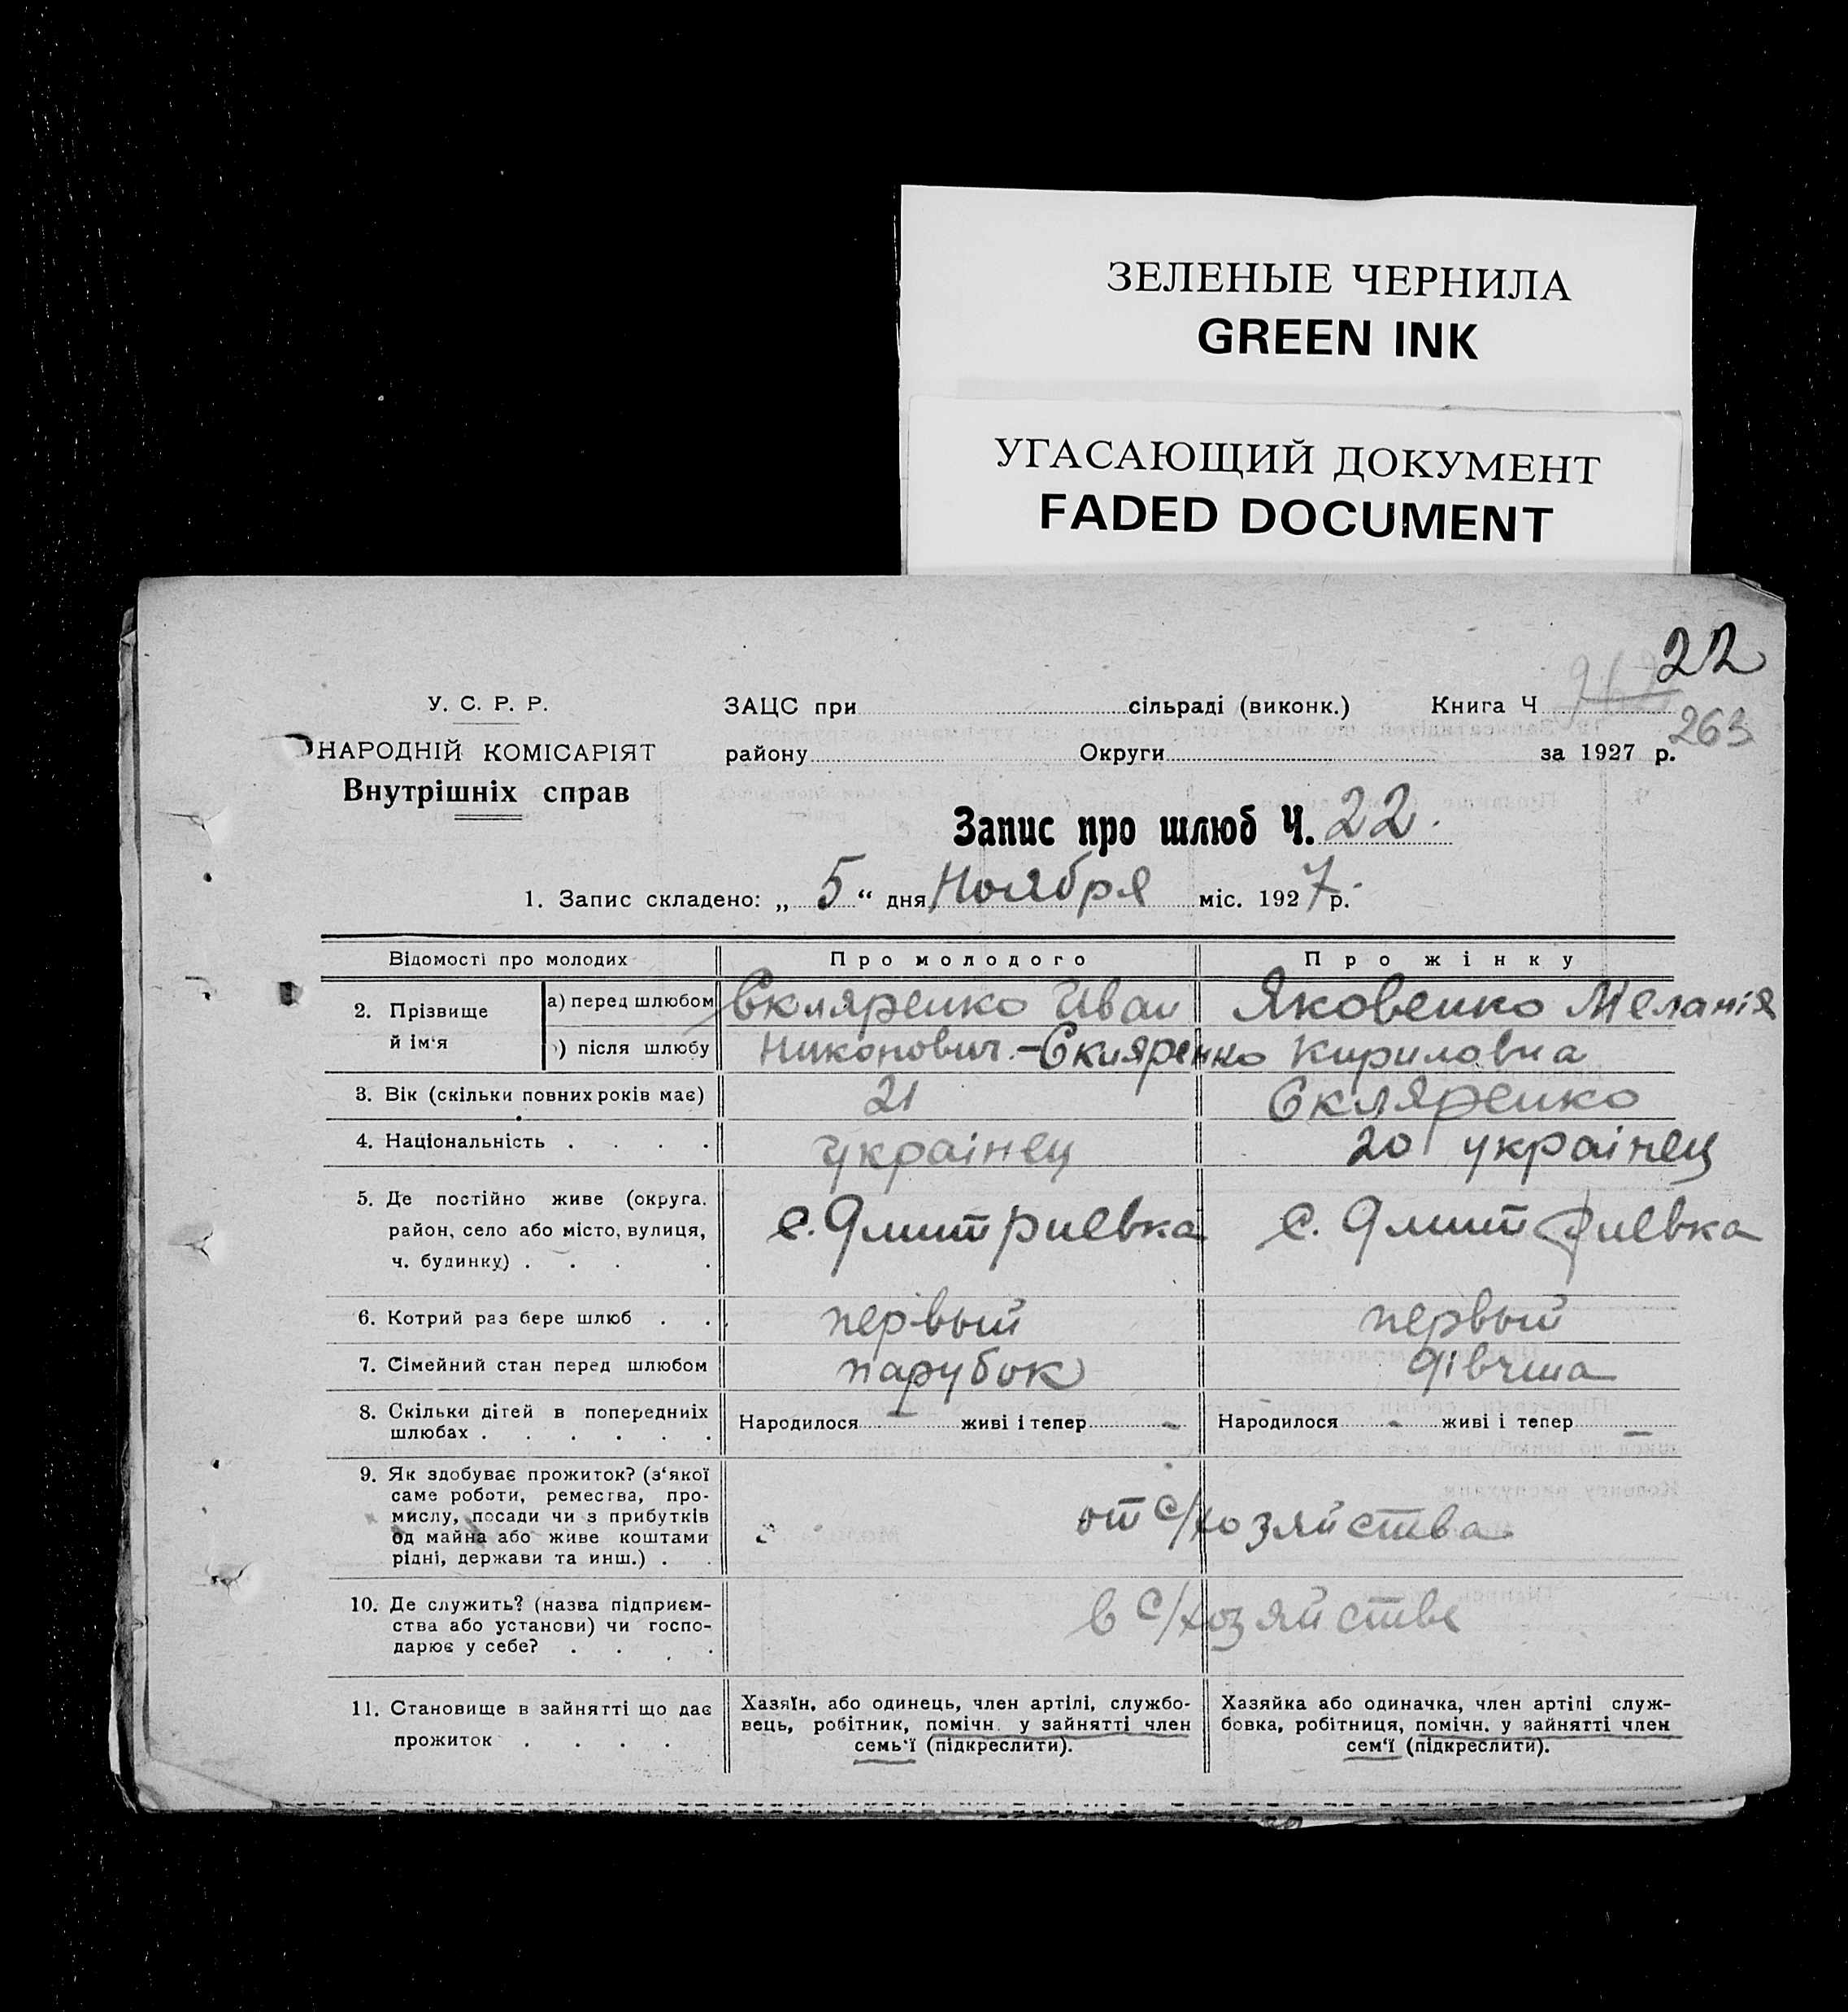 ЗЕЛЕНЫЕ ЧЕРНИЛА
GREEN INK
УГАСАЮЩИЙ ДОКУМЕНТ
FADED DOCUMENT
22
У. С. Р. Р.
ЗАЦС при сільраді (виконк.) Книга Ч
263
НАРОДНІЙ КОМІСАРІЯТ
району Округи за 1927 р.
Внутрішніх справ
Запис про шлюб Ч. 22.
1. Запис складено: „ 5 “ дня Ноября міс. 1927 р.
Відомості про молодих
Про молодого
Про жінку
2. Прізвище й ім‘я
а) перед шлюбом
Скляренко Иван
Яковенко Меланія
) після шлюбу
Никонович. – Скляренко
Кириловна
3. Вік (скільки повних років має)
21
Скляренко
4. Національність . . . .
украінец
20 украінец
5. Де постійно живе (округа.
район, село або місто, вулиця,
ч. будинку) . . . .
с. Дмитриевка
с. Дмитриевка
6. Котрий раз бере шлюб . .
первый
первый
7. Сімейний стан перед шлюбом
парубок
дівчина
8. Скільки дітей в попередниіх
шлюбах . . . . . .
Народилося – живі і тепер –
Народилося - живі і тепер –
9. Як здобуває прожиток? (з‘якої
саме роботи, ремества, про-
мислу, посади чи з прибутків
од майна або живе коштами
рідні, держави та инш.) . .
от с/хозяйства
10. Де служить? (назва підприєм-
ства або установи) чи госпо-
дарює у себе? . . . .
в с/хозяйстве
11. Становище в зайнятті що дає
прожиток . . . .
Хазяїн, або одинець, член артілі, службо-
вець, робітник, помічн. у зайнятті член
семь‘ї (підкреслити).
Хазяйка або одиначка, член артілі служ-
бовка, робітниця, помічн. у зайнятті член
сем‘ї (підкреслити).